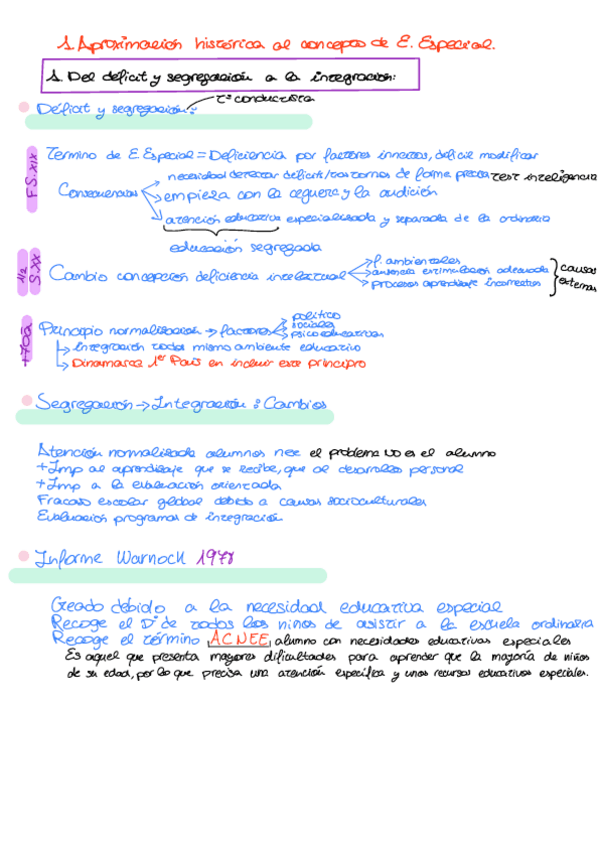 1. Aproximación histórica al concepto de E. Especial.
1. Del déficit y segregación a la integración:
Déficit y segregación: Tª conductista
F S.XIX
Termino de E. Especial = Deficiencia por factores innatos, dificil modificar
Consecuencias
necesidad detectar deficit/trastornos de forma precisa test inteligencia
empieza con la ceguera y la audición
atención educativa especializada y separada de la ordinaria
educación segregada
1/2 S.XX
Cambio concepción deficiencia intelectual
f. ambientales
ausencia estimulación adecuada
procesos aprendizaje incorrectos
causas externas
+70a
Principio normalización → factores
politico
sociales
psicoeducativas
↳ Integración todos mismo ambiente educativo
↳ Dinamarca 1er País en incluir este principio
Segregación → Integración: Cambios
Atención normalizada alumnos nee el problema no es el alumno
+ Imp al aprendizaje que se recibe, que al desarrollo personal
+ Imp a la evaluación orientada
Fracaso escolar global debido a causas socioculturales
Evaluación programas de integración
Informe Warnock 1978
Creado debido a la necesidad educativa especial
Recoge el Dº de todos los niños de asistir a la escuela ordinaria
Recoge el término ACNEE, alumno con necesidades educativas especiales
Es aquel que presenta mayores dificultades para aprender que la mayoría de niños
de su edad, por lo que precisa una atención específica y unos recursos educativos especiales.